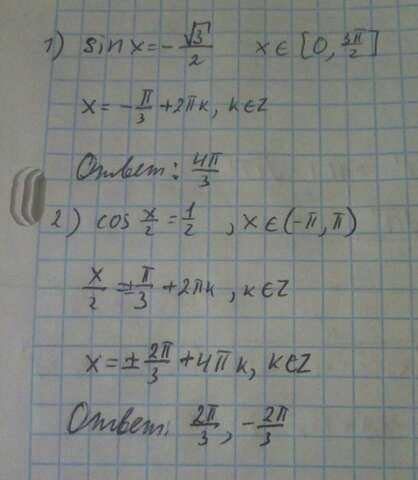 1) sin x = -√3/2 x ∈ [0, 3π/2]
x = -π/3 + 2πk, k ∈ Z
Ответ: 4π/3
2) cos x/2 = 1/2 , x ∈ (-π, π)
x/2 = ±π/3 + 2πk, k ∈ Z
x = ± 2π/3 + 4πk, k ∈ Z
Ответ: 2π/3, -2π/3